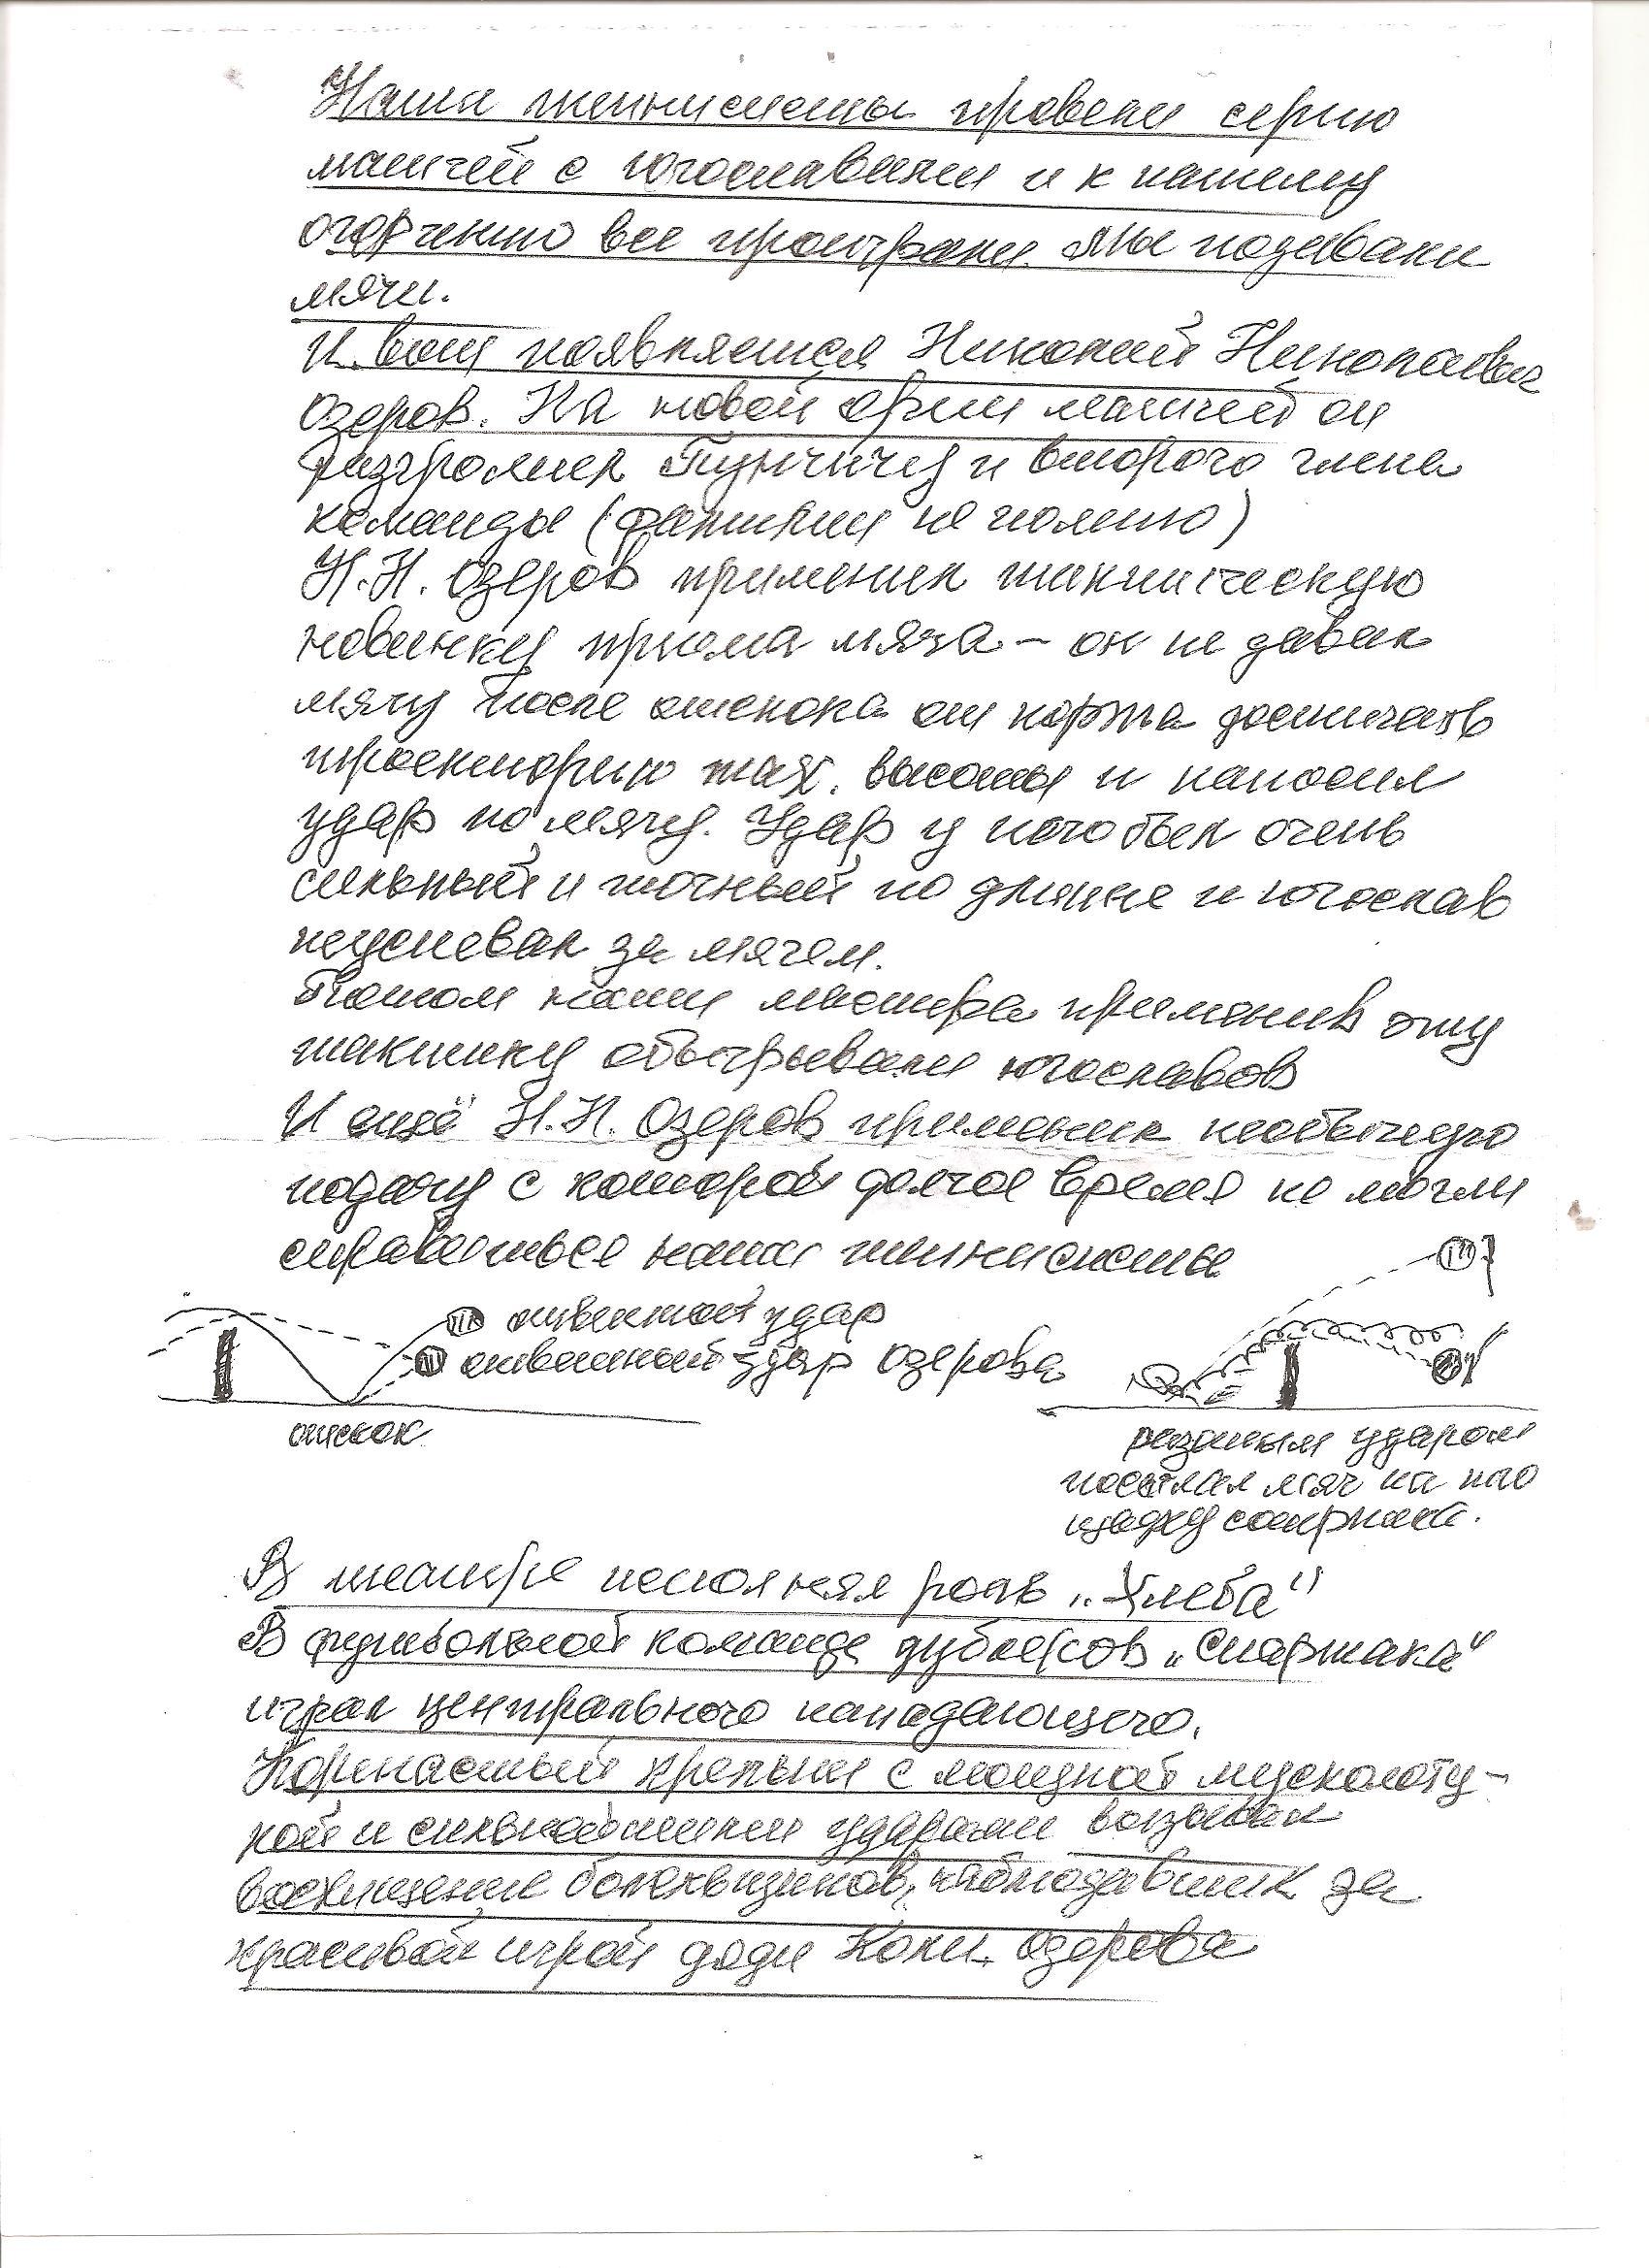 Наши теннисисты провели серию
матчей с югославами и к нашему
огорчению все проиграли. Мы подавали
мячи.
И вот появляется Николай Николаевич
Озеров. На новой серии матчей он
разгромил Пунчича и второго члена
команды (фамилии не помню)
Н.Н. Озеров применил тактическую
новинку приема мяча – он не давал
мячу после отскока от корта достигать
траекторию max. высоты и наносил
удар по мячу. Удар у него был очень
сильный и точный по длине и югослав
неуспевал за мячем.
Потом наши мастера применив эту
тактику обыгрывали югославов
И ещё Н.Н. Озеров применил необычную
подачу с которой долгое время не могли
справиться наши теннисисты
ответный удар
ответный удар Озерова
отскок
резаным ударом
посылал мяч на пло
щадку соперника.
В театре исполнял роль „Хлеба"
В футбольной команде дублёров „Спартака"
играл центрального нападающего.
Коренастый крепыш с мощной мускулату-
рой и сильнейшими ударами вызывал
восхищение болельщиков, наблюдавших за
красивой игрой дяди Коли. Озерова